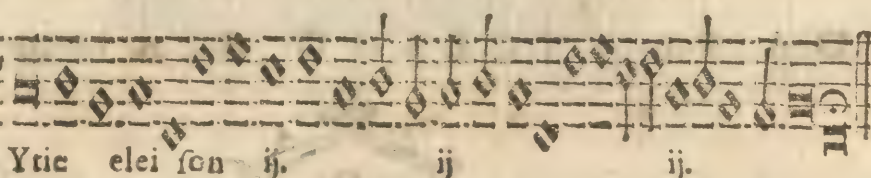 Yrie elei ſon ij. ij ij.